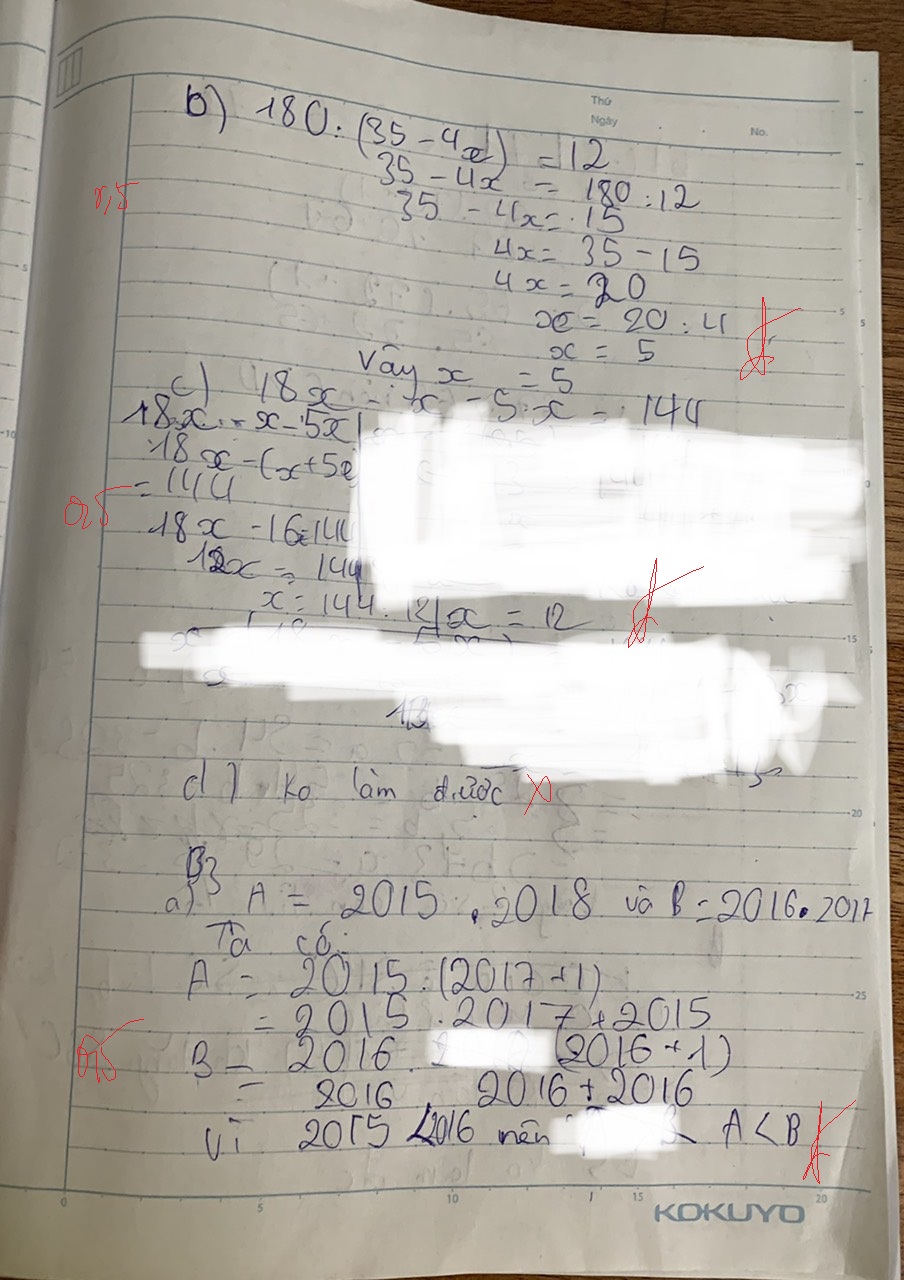 Thứ
Ngày No.
b) 180 : (35 - 4x) = 12
35 - 4x = 180 : 12
0,5
35 - 4x = 15
4x = 35 - 15
4x = 20
x = 20 : 4
x = 5
Vậy x = 5
c) 18x - x - 5.x = 144
18x - x - 5x
18x - (x + 5x)
= 144
0,5
18x - 16 = 144
12x = 144
x = 144 : 12 x = 12
18
d) Ko làm được
B3
a) A = 2015 . 2018 và B = 2016 . 2017
Ta có:
A = 2015 . (2017 + 1)
= 2015 . 2017 + 2015
0,5
B = 2016 . (2016 + 1)
= 2016 2016 + 2016
Vì 2015 < 2016 nên A < B
5 10 15 20
KOKUYO